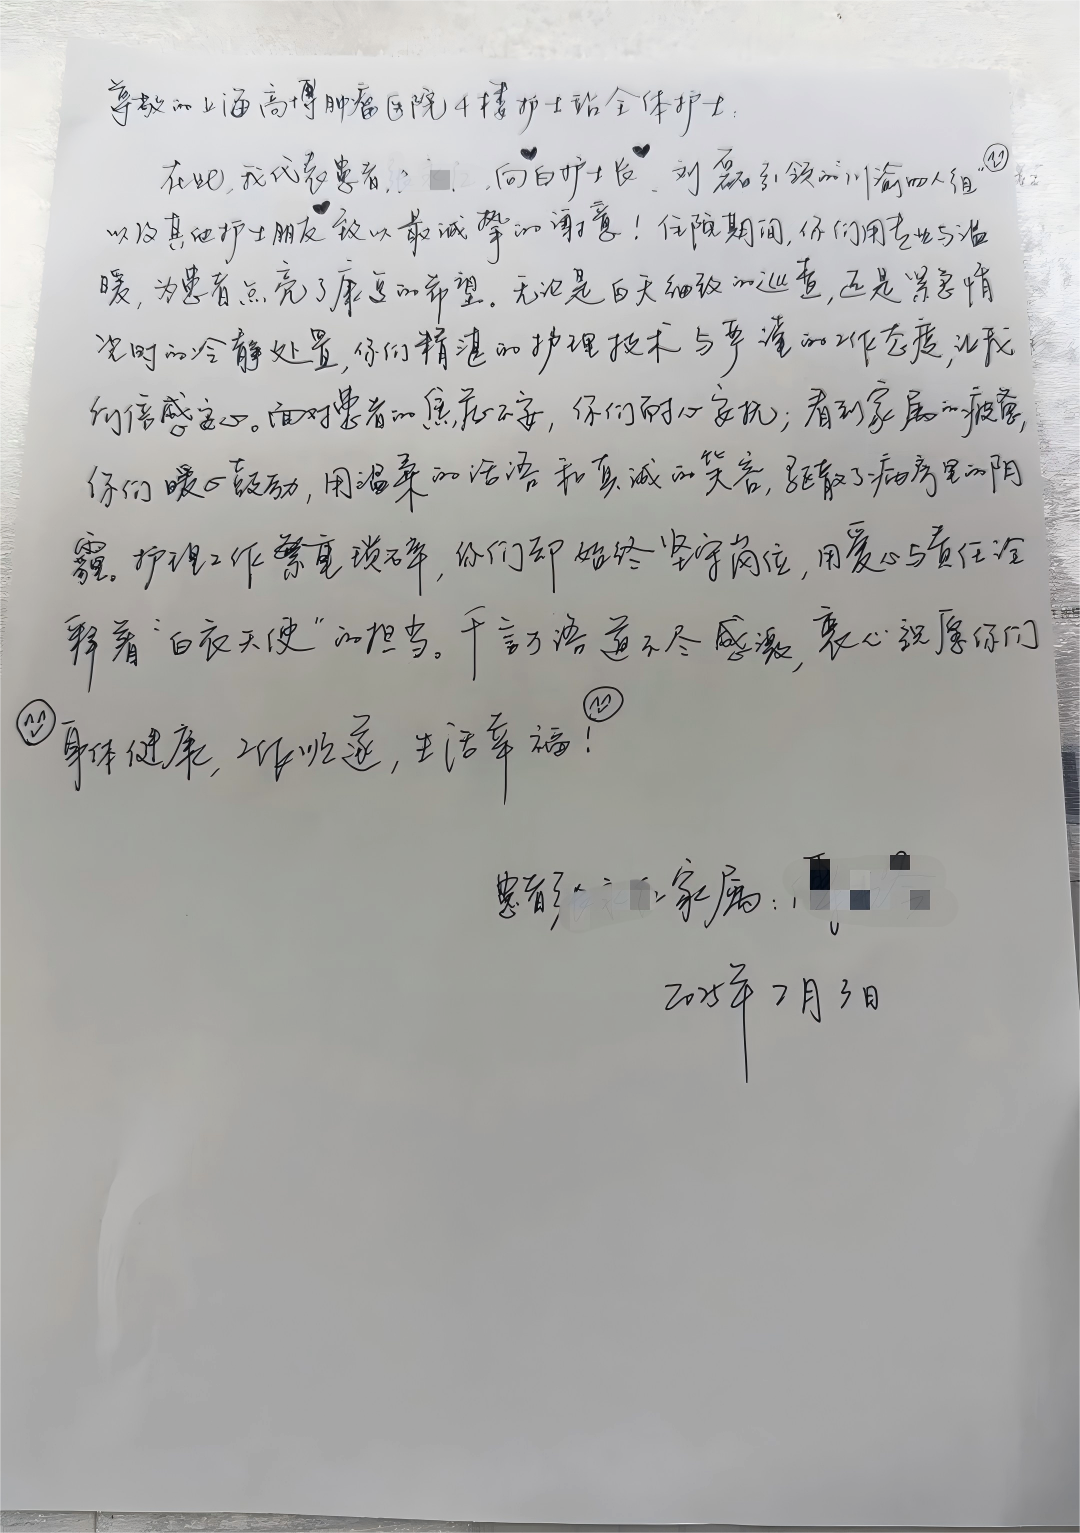 尊敬的上海高博肿瘤医院4楼护士站全体护士:
在此,我代表患者 ,向白护士长、刘磊引领的川渝四人组"
以及其他护士朋友致以最诚挚的谢意!住院期间,你们用专业与温
暖,为患者点亮了康复的希望。无论是白天细致的巡查,还是紧急情
况时的冷静处置,你们精湛的护理技术与严谨的工作态度,让我
们倍感安心。面对患者的焦虑不安,你们耐心安抚;看到家属的疲惫,
你们暖心鼓励,用温柔的话语和真诚的笑容,驱散了病房里的阴
霾。护理工作繁重琐碎,你们却始终坚守岗位,用爱心与责任诠
释着"白衣天使"的担当。千言万语道不尽感激,衷心祝愿你们
身体健康,工作顺遂,生活幸福!
患者 家属:
2025年2月3日